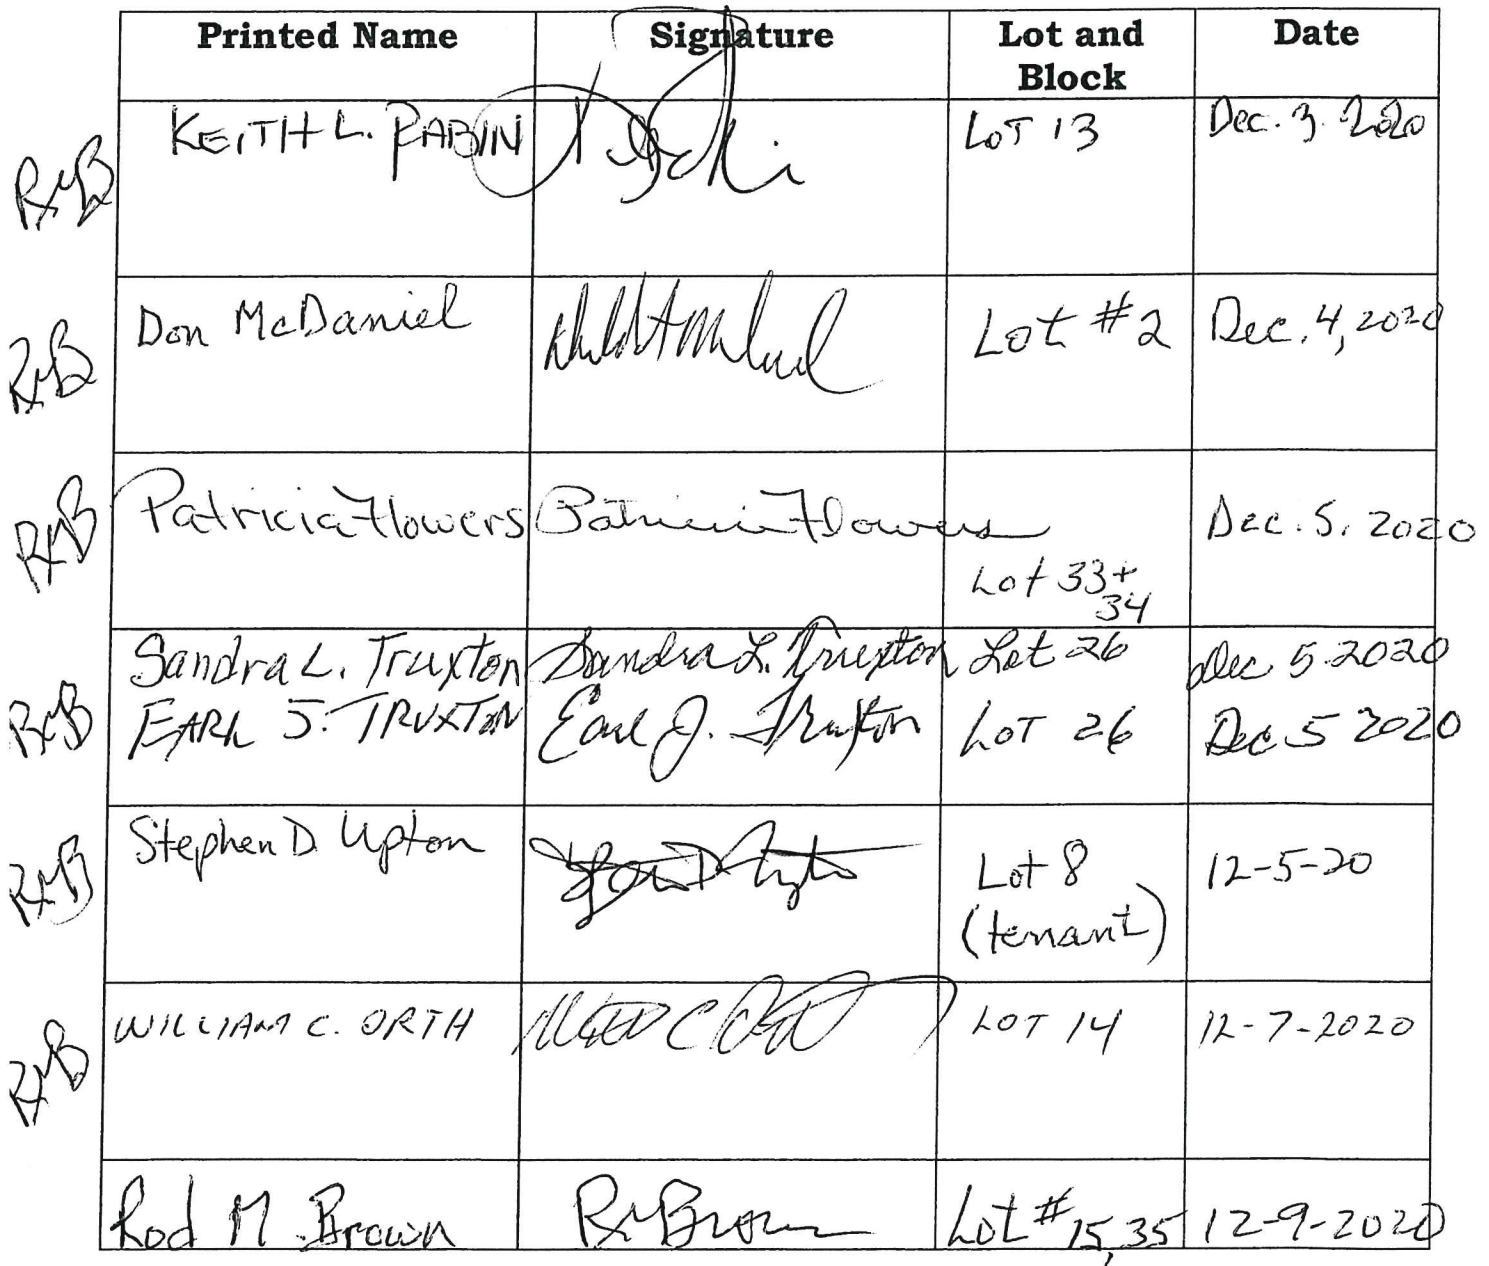 Printed Name Signature Lot and Block Date
RMB KEITH L. RABIN LOT 13 Dec. 3. 2020
RMB Don McDaniel Lot #2 Dec. 4, 2020
RMB Patricia Flowers Patricia Flowers Lot 33+ 34 Dec. 5. 2020
Sandra L. Truxton Sandra L. Truxton Lot 26 Dec 5 2020
RMB EARL J. TRUXTON Earl J. Truxton LOT 26 Dec 5 2020
RMB Stephen D. Upton Lot 8 (tenant) 12-5-20
RMB WILLIAM C. ORTH LOT 14 12-7-2020
Rod M. Brown RMBrown Lot # 15, 35 12-9-2020